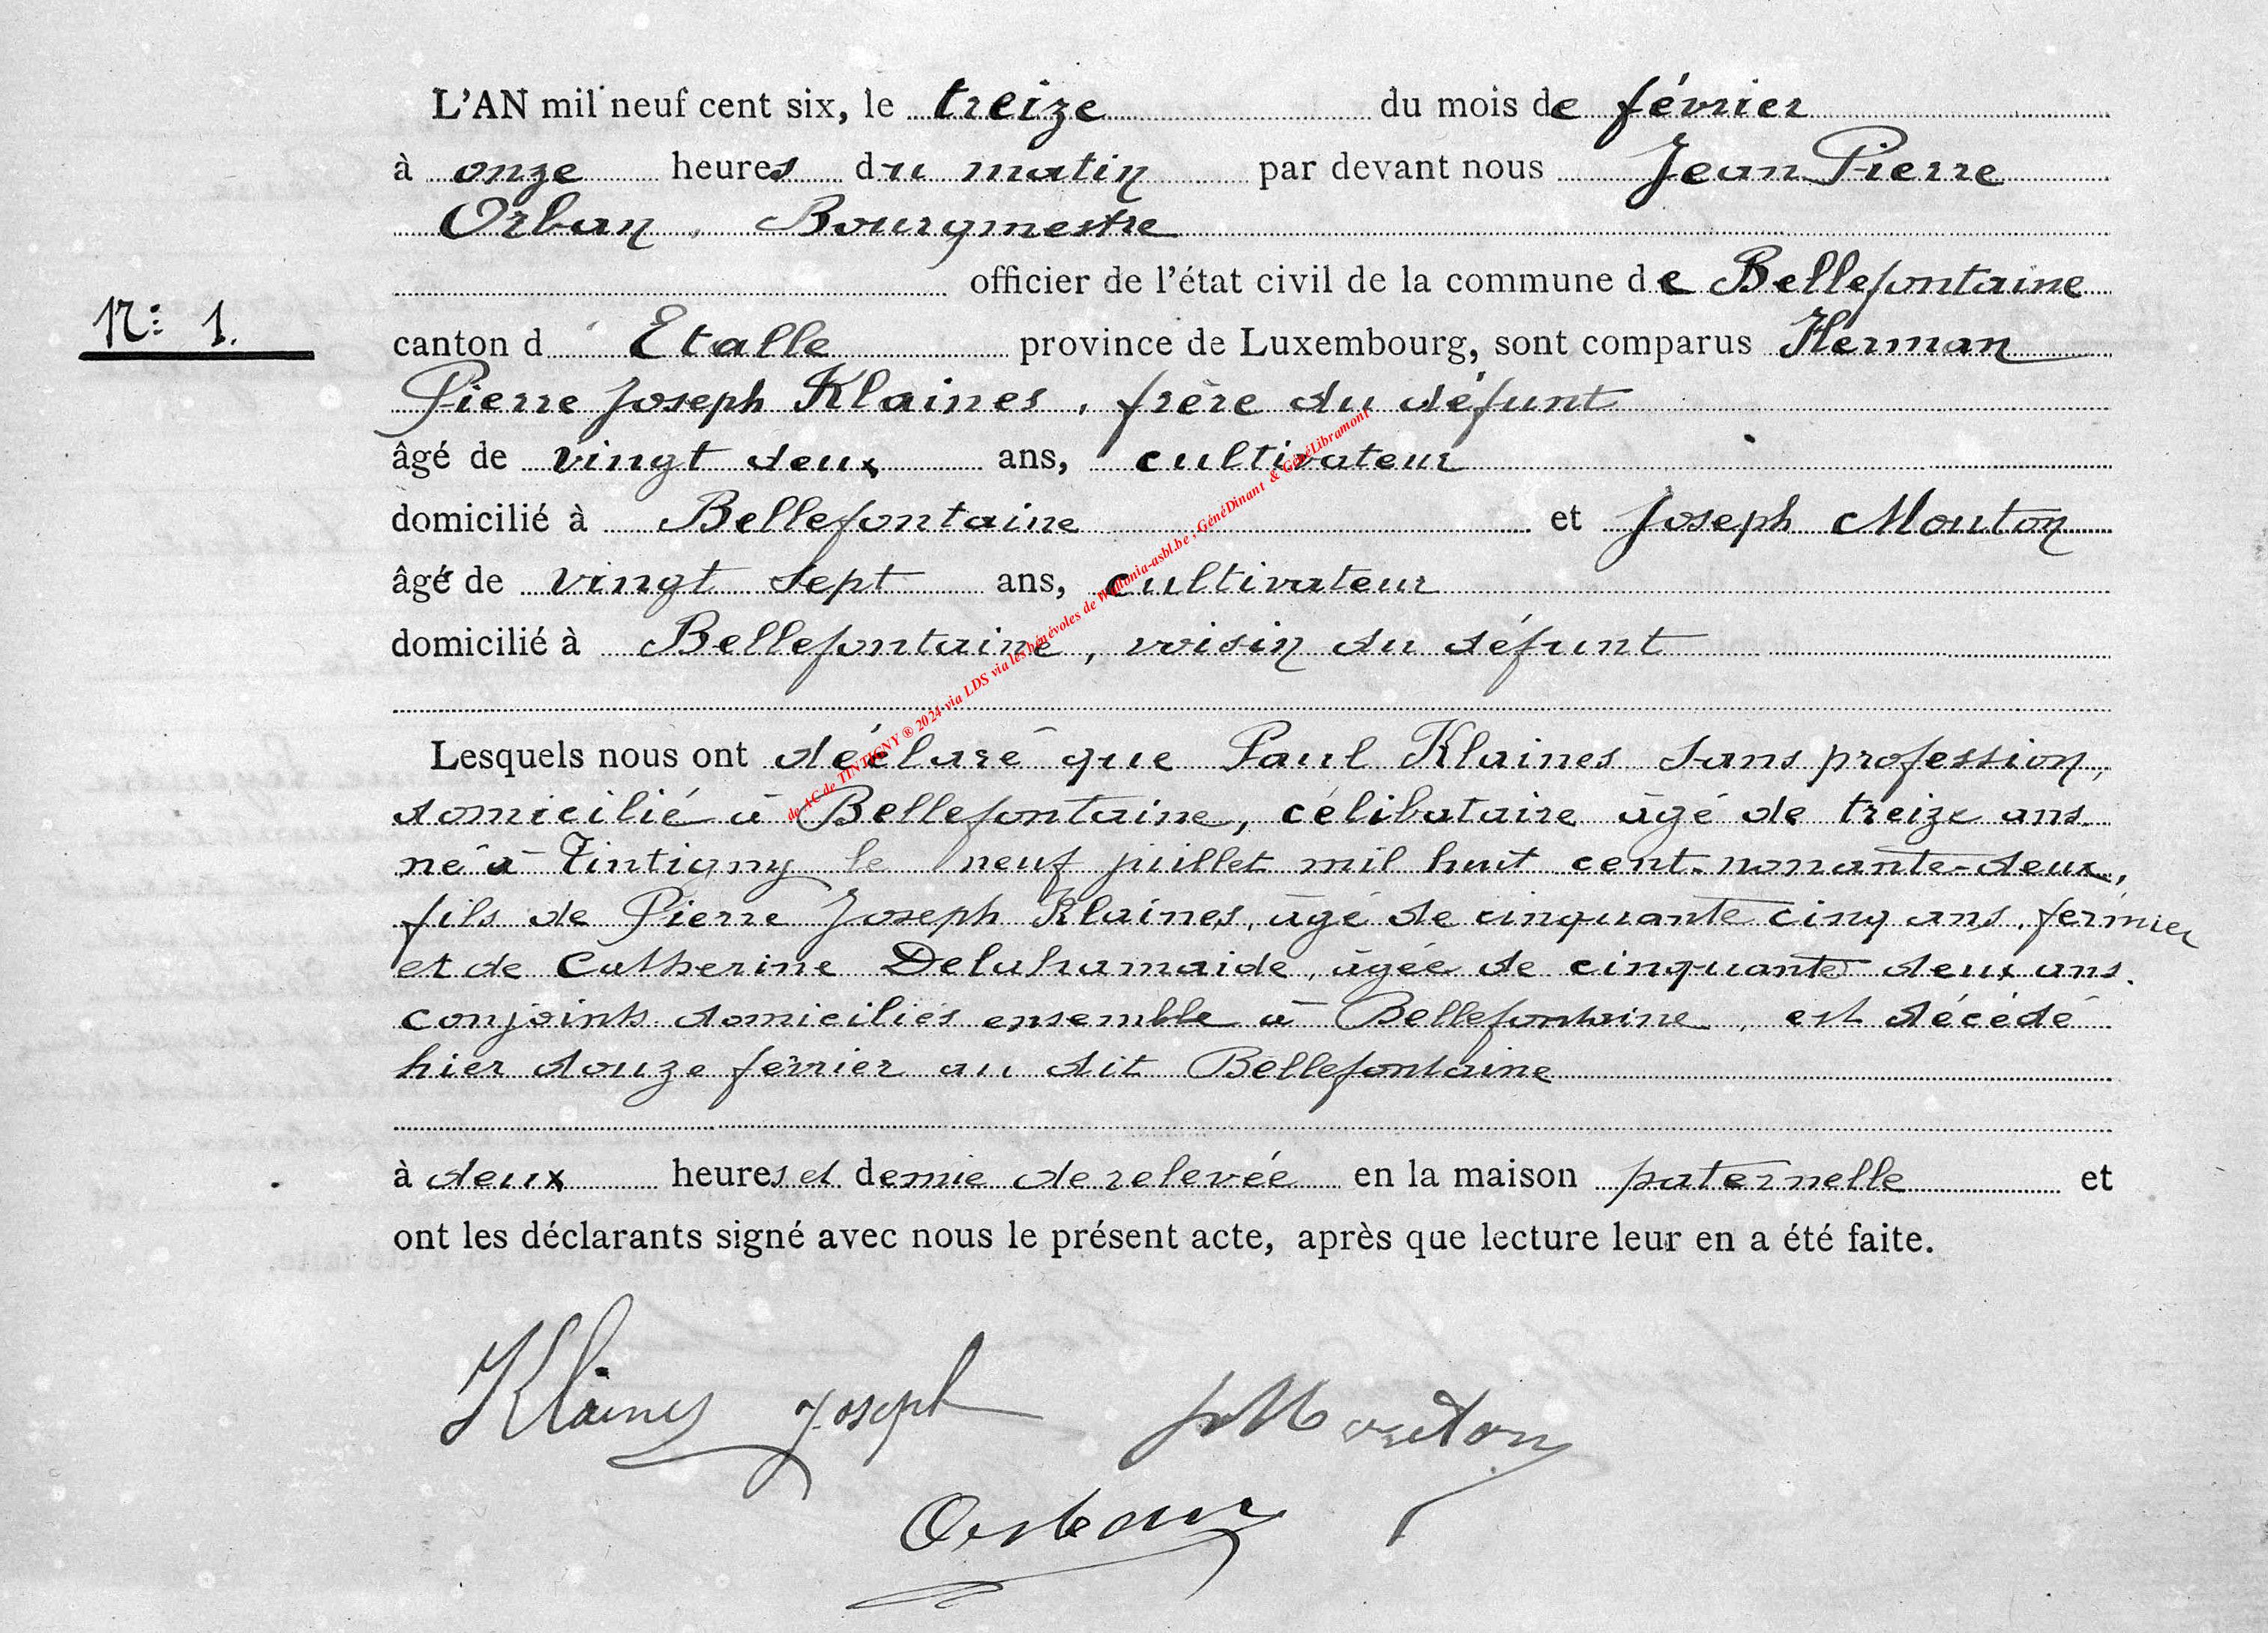 L'AN mil neuf cent six, le treize du mois de février
à onze heures du matin par devant nous Jean Pierre
Orban, Bourgmestre
officier de l'état civil de la commune de Bellefontaine
N: 1.
canton d Etalle province de Luxembourg, sont comparus Herman
Pierre Joseph Klaines, frère du défunt
âgé de vingt deux ans, cultivateur
domicilié à Bellefontaine et Joseph Mouton
âgé de vingt sept ans, cultivateur
domicilié à Bellefontaine, voisin du défunt
Lesquels nous ont déclaré que Paul Klaines sans profession,
domicilié à Bellefontaine, célibataire âgé de treize ans
né à Tintigny le neuf juillet mil huit cent nonante-deux,
fils de Pierre Joseph Klaines, âgé de cinquante cinq ans, fermier
et de Catherine Delahamaide, âgée de cinquante deux ans.
conjoints domiciliés ensemble à Bellefontaine, est décédé
hier douze février au dit Bellefontaine
à deux heures et demie de relevée en la maison paternelle et
ont les déclarants signé avec nous le présent acte, après que lecture leur en a été faite.
Klaines Joseph J Mouton
Orban
de AC de TINTIGNY ® 2024 via LDS via les bénévoles de Wallonia-asbl.be, GénéDinant & GénéLibramont